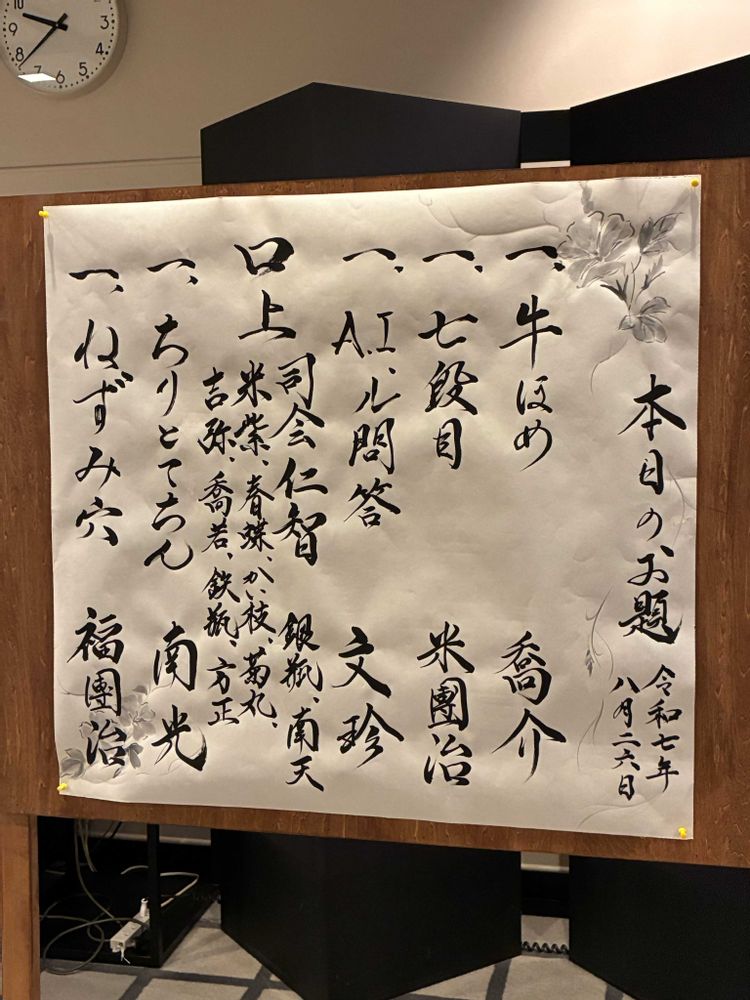 本日のお題
令和七年
八月二六日
一、牛ほめ 喬介
一、七段目 米團治
一、A.I.ル問答 文珍
口上
司会仁智 銀瓶、南天
米紫、春蝶、かい枝、菊丸、
吉弥、喬若、鉄瓶、方正
一、ちりとてちん 南光
一、ねずみ穴 福團治
10
9
8
7
6
5
4
3
2